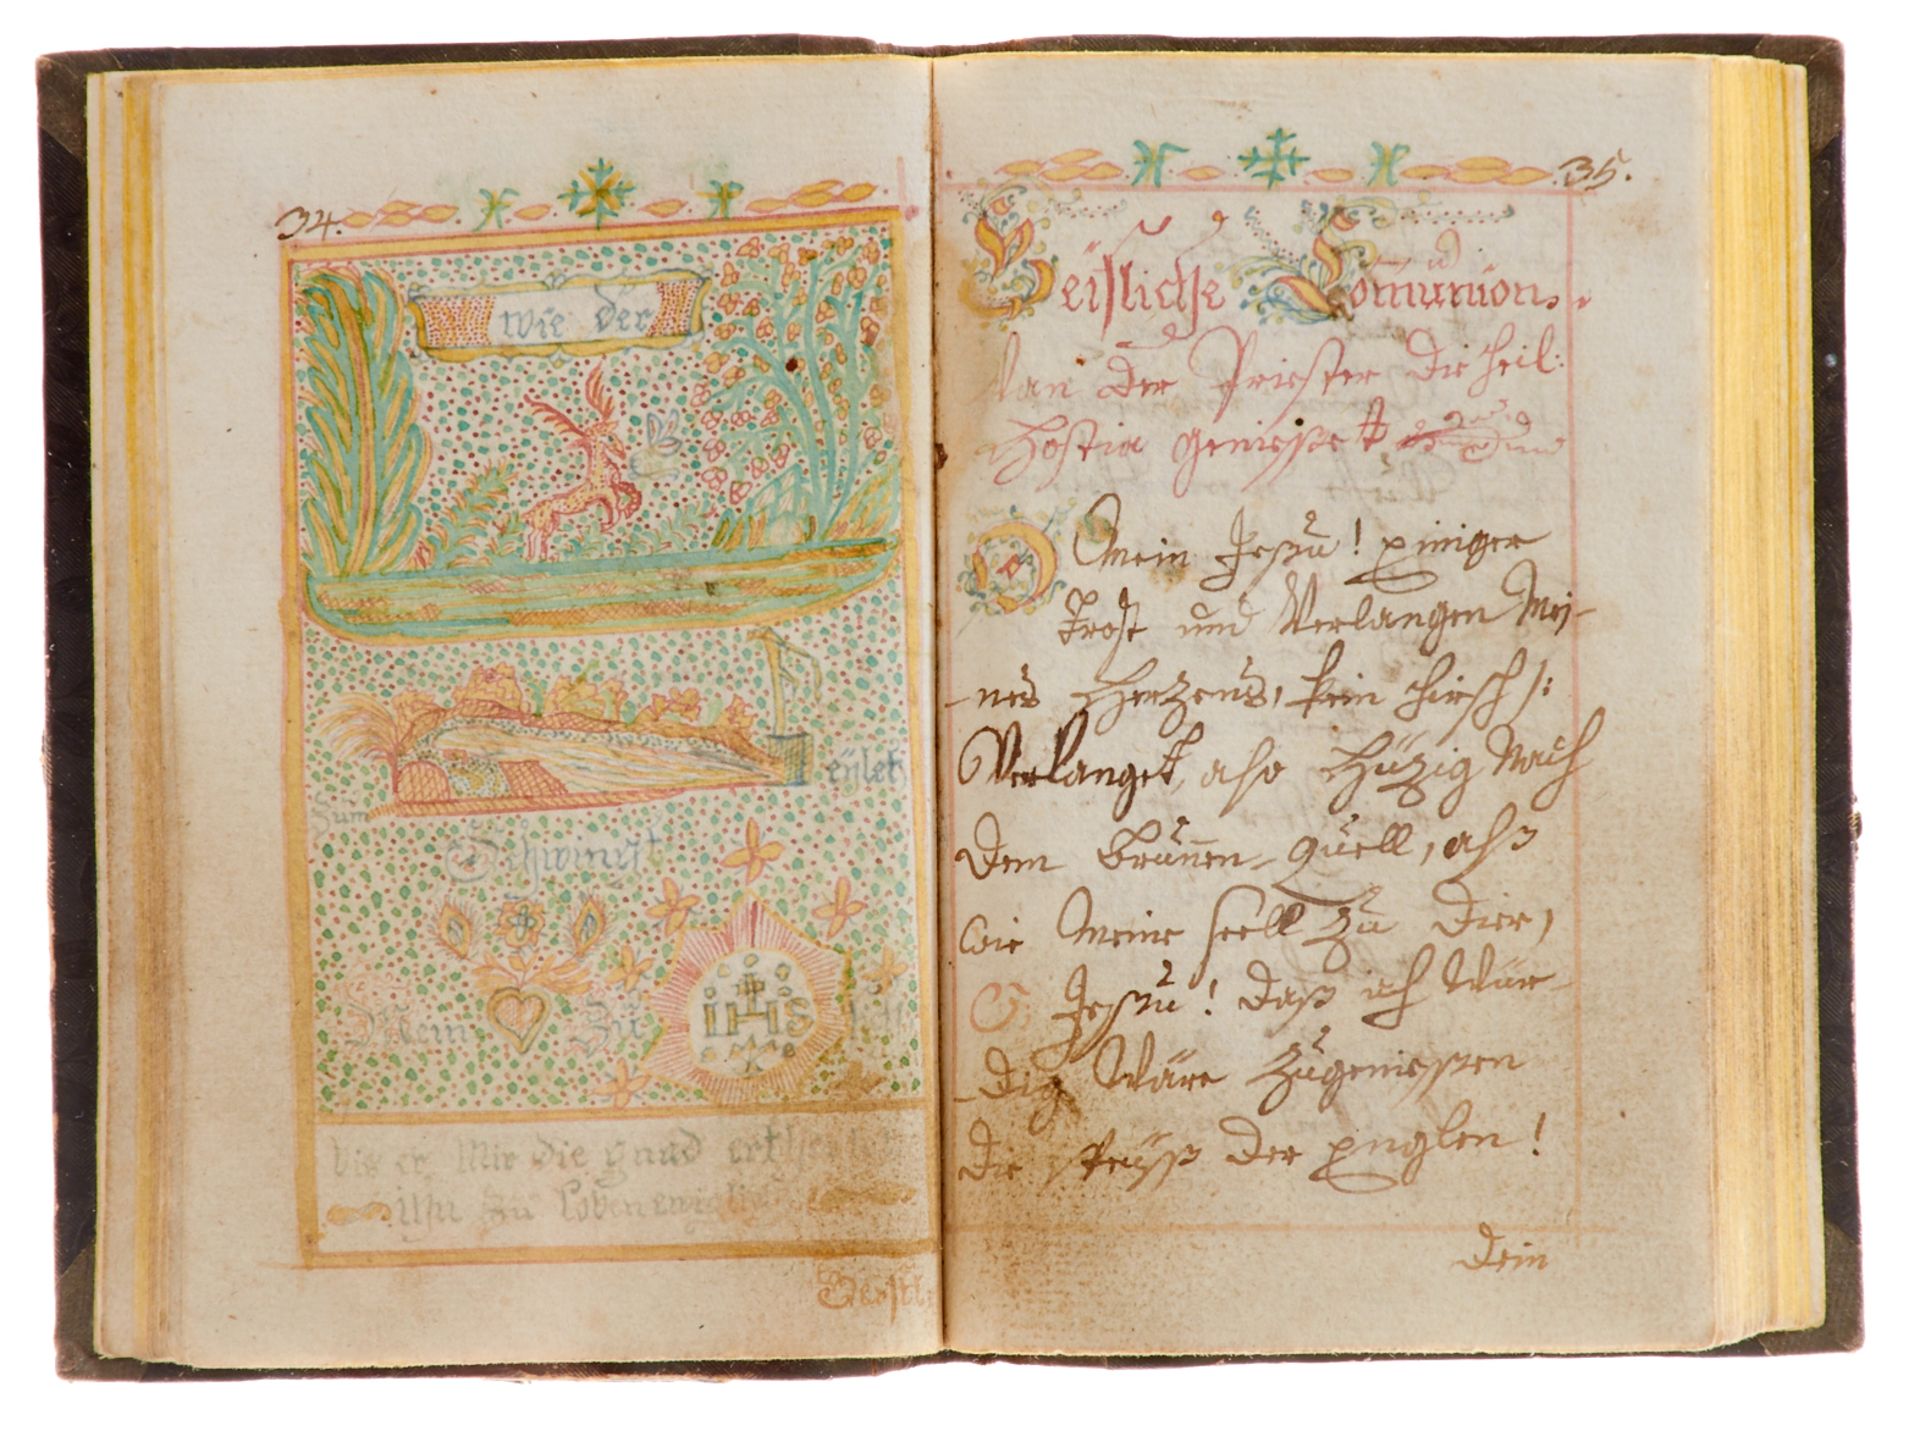 34.
wie der
eÿlet
zum
Schwingt
Mein
Zu
IHS
bis er Mir die gnad
ihn zu Loben ewiglich
Geistl:
35.
Geistliche Communion.
Wan der Priester die heil:
Hostia geniesset
O Mein Jesu! Einiger
Trost und Verlangen Mei-
-nes Hertzens, kein Hirsch /:
Verlanget also Hützig Nach
dem brunen-quell, alß
wie Meine seell zu dier,
O Jesu! daß ich Wür-
-dig Wäre zugeniessen
die speÿß der Englen!
dein